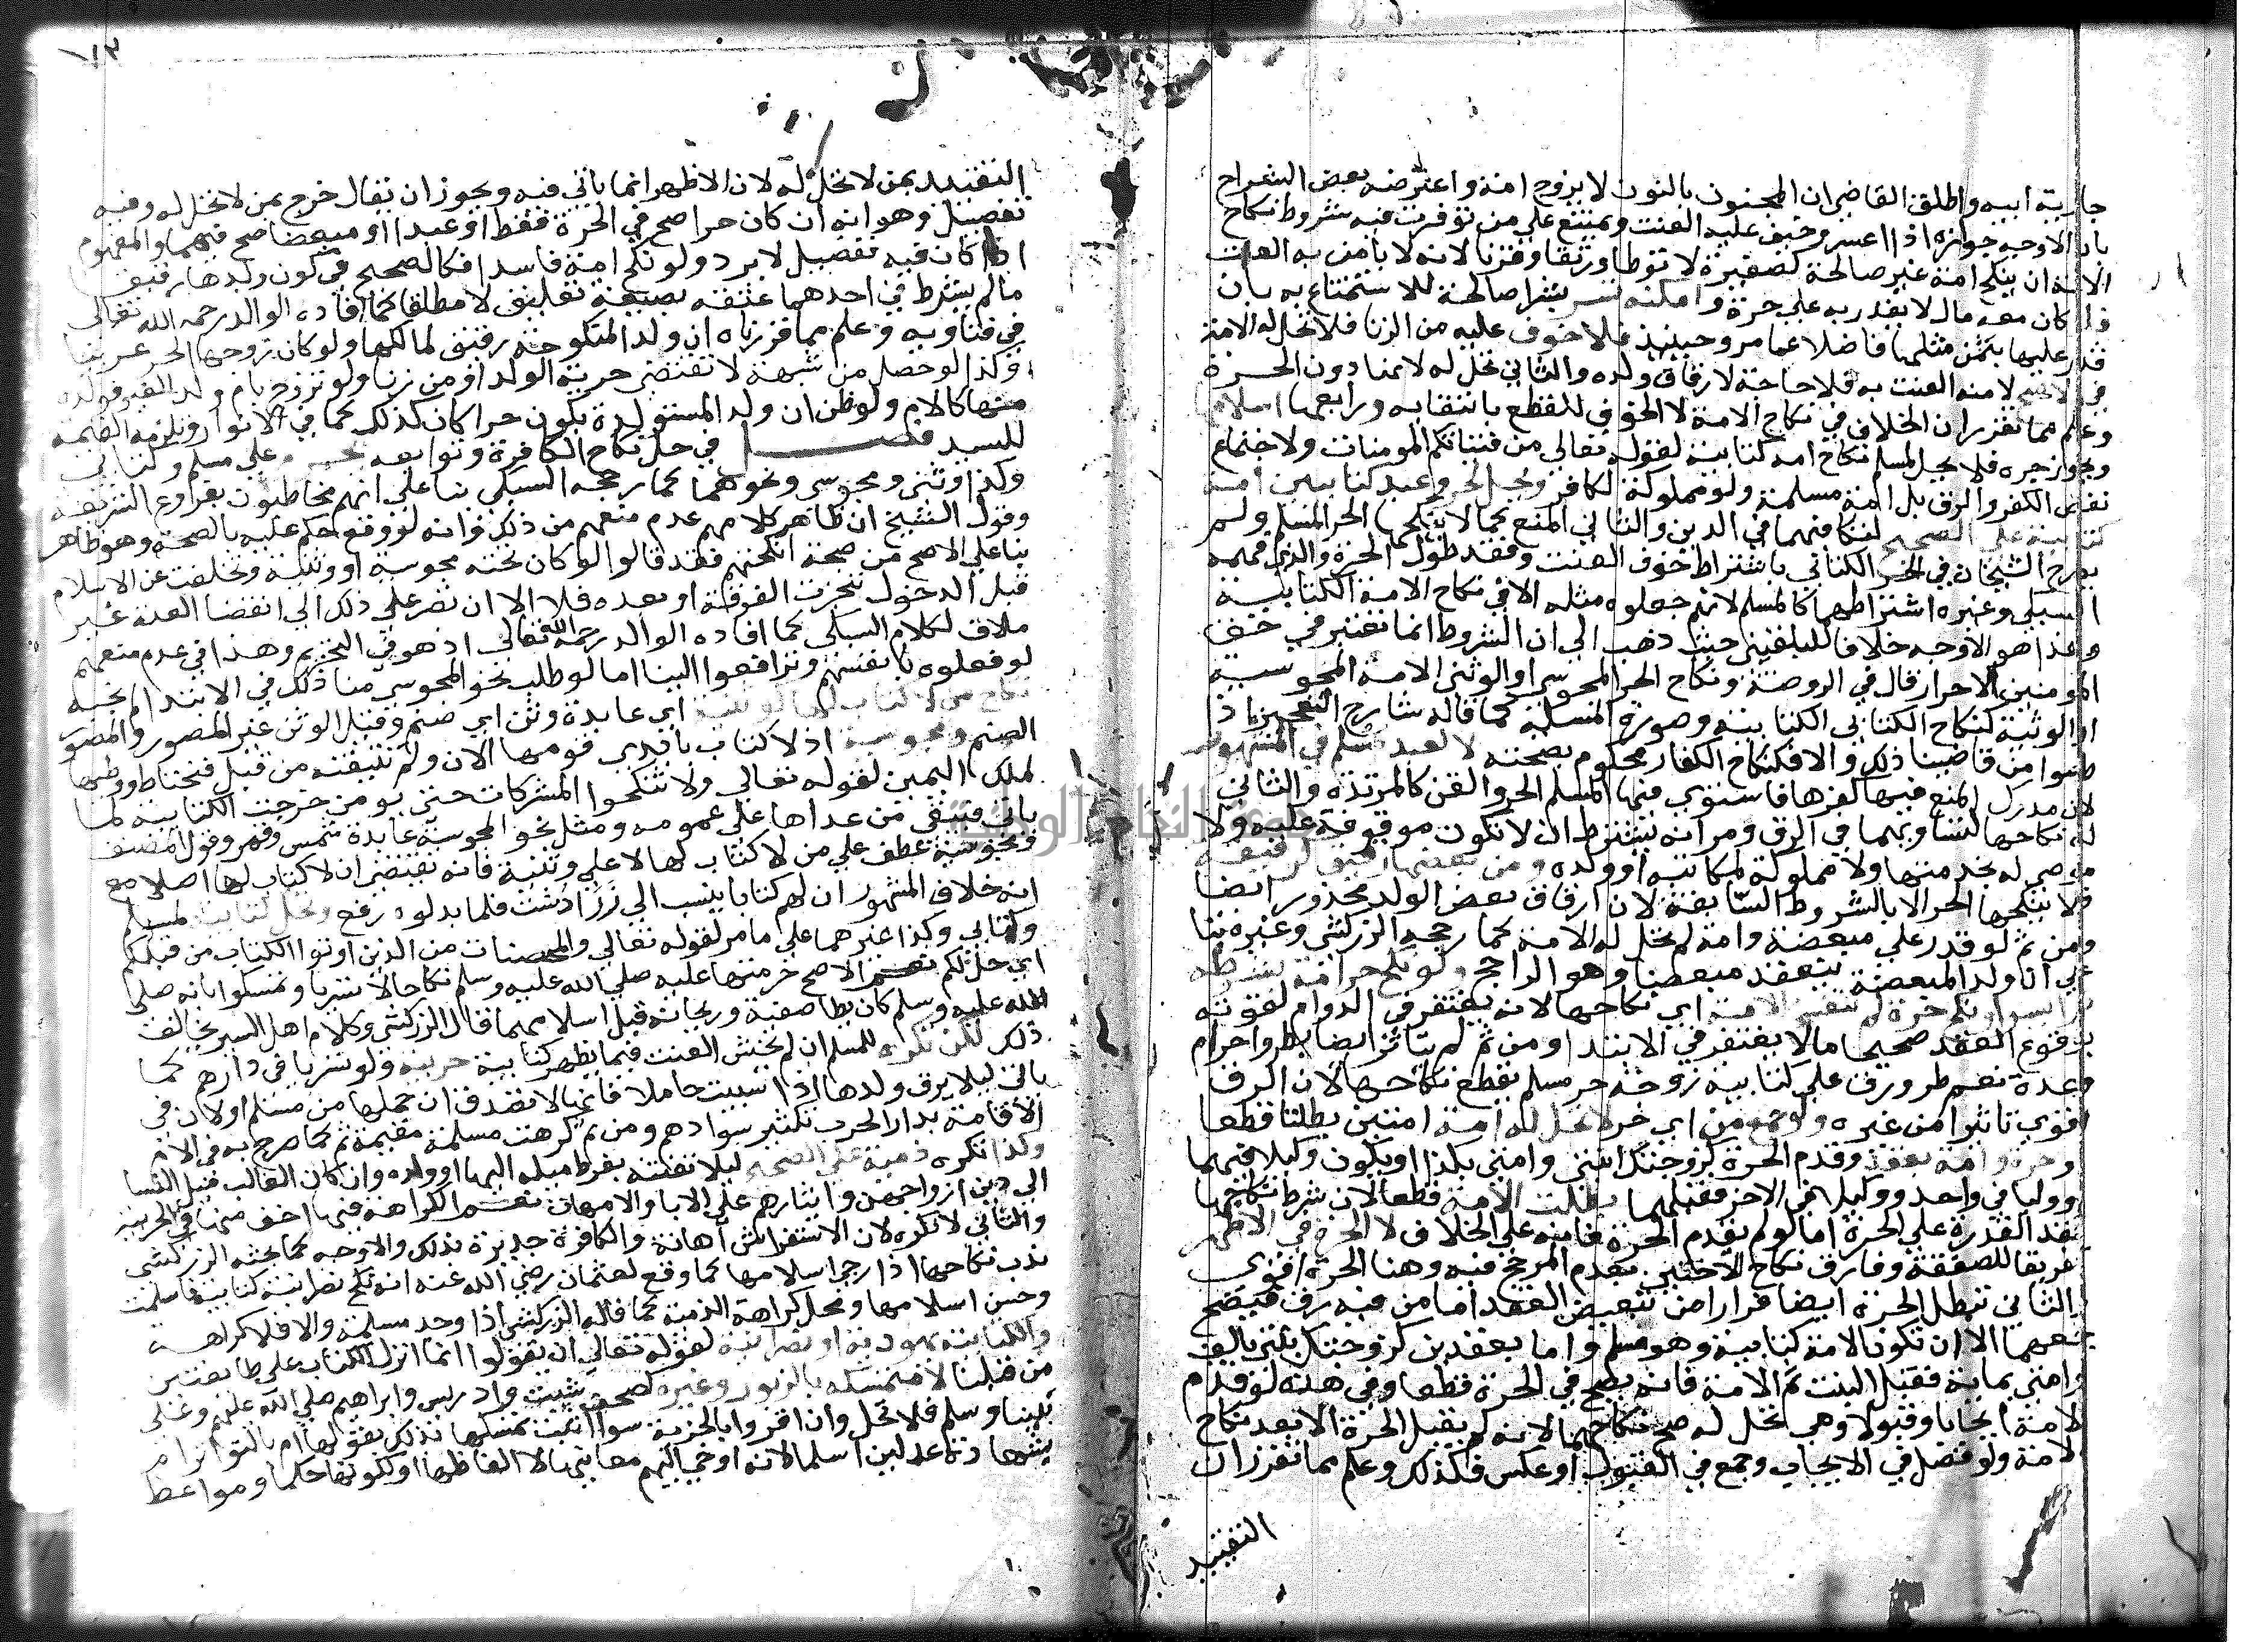 جارية ابيه واطلق القاضي ان المجنون بالنون لا يزوج امة واعترضه بعض الشراح
بان الاوجه جوازه اذا اعسر وخيف عليه العنت ويمتنع على من توفرت فيه شروط نكاح
الامة ان ينكح امة غير صالحة كصغيرة لا توطا ورتقا وقرنا لانه لا يامن به العنت
فلو كان معه مال لا يقدر به على حرة وامكنه تسر بشرا صالحة للاستمتاع به بان
قدر عليها بثمن مثلها فاضلا عما مر وحينئذ فلا خوف عليه من الزنا فلا تحل له الامة
في الاصح لامنه العنت به فلا حاجة لارقاق ولده والثاني تحل له لانها دون الحرة
وعلم مما تقرر ان الخلاف في نكاح الامة لا الخوف للقطع بانتفايه ورابعها اسلامها
ويجوز جره فلا يحل لمسلم نكاح امة كتابية لقوله تعالى من فتياتكم المومنات ولاجتماع
نقصي الكفر والرق بل امة مسلمة ولو مملوكة لكافر ويحل لحر وعبد كتابيين امة
كتابية على الصحيح لتكافيهما في الدين والثاني المنع كما لا ينكحها الحر المسلم ولم
يصرح الشيخان في الحر الكتابي باشتراط خوف العنت وفقد طول الحرة والذي فهمه
السبكي وغيره اشتراطهما كالمسلم لانهم جعلوه مثله الا في نكاح الامة الكتابية
وهذا هو الاوجه خلافا للبلقيني حيث ذهب الى ان الشروط انما تعتبر في حق
المومنين الاحرار قال في الروضة ونكاح الحر المجوسي او الوثني الامة المجوسية
او الوثنية كنكاح الكتابي الكتابية وصورة المسلة كما قاله شارح التعجيز اذا
طلبوا من قاضينا ذلك والا فنكاح الكفار محكوم بصحته لا لعبد مسلم في المشهور
لان مدرك المنع فيها كفرها فاستوى فيها المسلم الحر والقن كالمرتدة والثاني
له نكاحها لتساويهما في الرق ومر انه يشترط ان لا تكون موقوفة عليه ولا
موصى له بخدمتها ولا مملوكة لمكاتبه او ولده ومن بعضها رقيق كرقيقة
فلا ينكحها الحر الا بالشروط السابقة لان ارقاق بعض الولد محذور ايضا
ومن ثم لو قدر على مبعضة وامة لم تحل له الامة كما رجحه الزركشي وغيره بنا
على ان ولد المبعضة ينعقد مبعضا وهو الراجح ولو نكح حر امة بشرطه
ثم ايسر او نكح حرة لم تنفسخ الامة اي نكاحها لانه يغتفر في الدوام لقوته
بوقوع العقد صحيحا ما لا يغتفر في الابتدا ومن ثم لم يتاثر ايضا بطرو احرام
وعدة نعم طرو رق على كتابية زوجة حر مسلم يقطع نكاحها لان الرق
اقوى تاثيرا من غيره ولو جمع من اي حر لا تحل له امة امتين بطلتا قطعا
وحرة وامة بعقد وقدم الحرة كزوجتك ابنتي وامتي بكذا او يكون وكيلا فيهما
ووليا في واحد ووكيلا في الاخر فقبلهما بطلت الامة قطعا لان شرط نكاحها
فقد القدرة على الحرة اما لو لم يقدم الحرة فانه على الخلاف لا الحرة في الاظهر
تفريقا للصفقة وفارق نكاح الاختين بعدم المرجح فيه وهنا الحرة اقوى
والثاني تبطل الحرة ايضا فرارا من تبعيض العقد اما من فيه رق فيصح
جمعهما الا ان تكون الامة كتابية وهو مسلم واما بعقدين كزوجتك بنتي بالف
وامتي بماية فقبل البنت ثم الامة فانه يصح في الحرة قطعا وفي هذه لو قدم
الامة ايجابا وقبولا وهي تحل له صح نكاحهما لانه لم يقبل الحرة الا بعد نكاح
الامة ولو فصل في الايجاب وجمع في القبول او عكس فكذلك وعلم مما تقرر ان
التقييد
١٢
التقييد بمن لا تحل له لان الاظهر انما ياتي فيه ويجوز ان يقال خرج بمن لا تحل له وفيه
تفصيل وهو انه ان كان حرا صح في الحرة فقط او عبدا او مبعضا صح فيهما والمفهوم
اذا كان فيه تفصيل لا يرد ولو نكح امة فاسدا فكالصحيح في كون ولدها رقيقا
ما لم يشترط في احدهما عتقه بصيغة تعليق لا مطلقا كما افاده الوالد رحمه الله تعالى
في فتاويه وعلم مما قررناه ان ولد المنكوحة رقيق لمالكها ولو كان زوجها الحر عربيا
وكذا لو حصل من شبهة لا تقتضي حرية الولد او من زنا ولو تزوج بام ولد الغير فولده
منها كالام ولو ظن ان ولد المستولدة يكون حرا كان كذلك كما في الانوار وتلزمه القيمة
للسيد فصل في حل نكاح الكافرة وتوابعه يحرم على مسلم وكتابي
وكذا وثني ومجوسي ونحوهما كما رجحه السبكي بنا على انهم مخاطبون بفروع الشريعة
وقول الشيخ ان ظاهر كلامهم عدم منعهم من ذلك وانه لو وقع حكم عليه بالصحة وهو ظاهر
بنا على الاصح من صحة انكحتهم فقد قالوا لو كان تحته مجوسية او وثنية وتخلفت عن الاسلام
قبل الدخول تنجزت الفرقة او بعده فلا الا ان تصر على ذلك الى انقضا العدة غير
ملاق لكلام السبكي كما افاده الوالد رحمه الله تعالى اذ هو في التحريم وهذا في عدم منعهم
لو فعلوه بانفسهم وترافعوا الينا اما لو طلب نحو المجوسي منا ذلك في الابتدا لم نجبه
نكاح من لا كتاب لها كوثنية اي عابدة وثن اي صنم وقيل الوثن غير المصور والمصور
الصنم ومجوسية اذ لا كتاب بايدي قومها الان ولم نتيقنه من قبل فنحتاط ووطيها
بملك اليمين لقوله تعالى ولا تنكحوا المشركات حتى يومن خرجت الكتابية لما
ياتي فيبقى من عداها على عمومه ومثل نحو المجوسية عابدة شمس وقمر وقول المصنف
ومجوسية عطف على من لا كتاب لها لا على وثنية فانه يقتضي ان لا كتاب لها اصلا مع
انه خلاف المشهور ان لهم كتابا ينسب الى زرادشت فلما بدلوه رفع وتحل كتابية لمسلم
وكتابي وكذا غيرهما على ما مر لقوله تعالى والمحصنات من الذين اوتوا الكتاب من قبلكم
اي حل لكم نعم الاصح حرمتها عليه صلى الله عليه وسلم نكاحا لا تسريا وتمسكوا بانه صلى
الله عليه وسلم كان يطا صفية وريحانة قبل اسلامهما قال الزركشي وكلام اهل السير يخالف
ذلك لكن تكره للمسلم ان لم يخش العنت فيما يظهر كتابية حربية ولو تسريا في دارهم كما
ياتي ليلا يرق ولدها اذا سبيت حاملا فانها لا تصدق ان حملها من مسلم او لان في
الاقامة بدار الحرب تكثير سوادهم ومن ثم كرهت مسلمة مقيمة ثم كما صرح به في الام
وكذا تكره ذمية على الصحيح ليلا تفتنه بفرط ميله اليها او ولده وان كان الغالب ميل النسا
الى دين ازواجهن وايثارهم على الابا والامهات نعم الكراهة فيها اخف منها في الحربية
والثاني لا تكره لان الاستفراش اهانة والكافرة جديرة بذلك والاوجه كما بحثه الزركشي
ندب نكاحها اذا رجي اسلامها كما وقع لعثمان رضي الله عنه انه نكح نصرانية كتابية فاسلمت
وحسن اسلامها ومحل كراهة الذمية كما قاله الزركشي اذا وجد مسلمة والا فلا كراهة
والكتابية يهودية او نصرانية لقوله تعالى ان تقولوا انما انزل الكتاب على طايفتين
من قبلنا لا متمسكة بالزبور وغيره كصحف شيث وادريس وابراهيم صلى الله عليهم وعلى
نبينا وسلم فلا تحل وان اقروا بالجزية سوا اثبت تمسكها بذلك بقولها ام بالتواتر ام
بشهادة عدلين اسلما لانه اوحي اليهم معانيها لا الفاظها او لكونها حكما ومواعظ